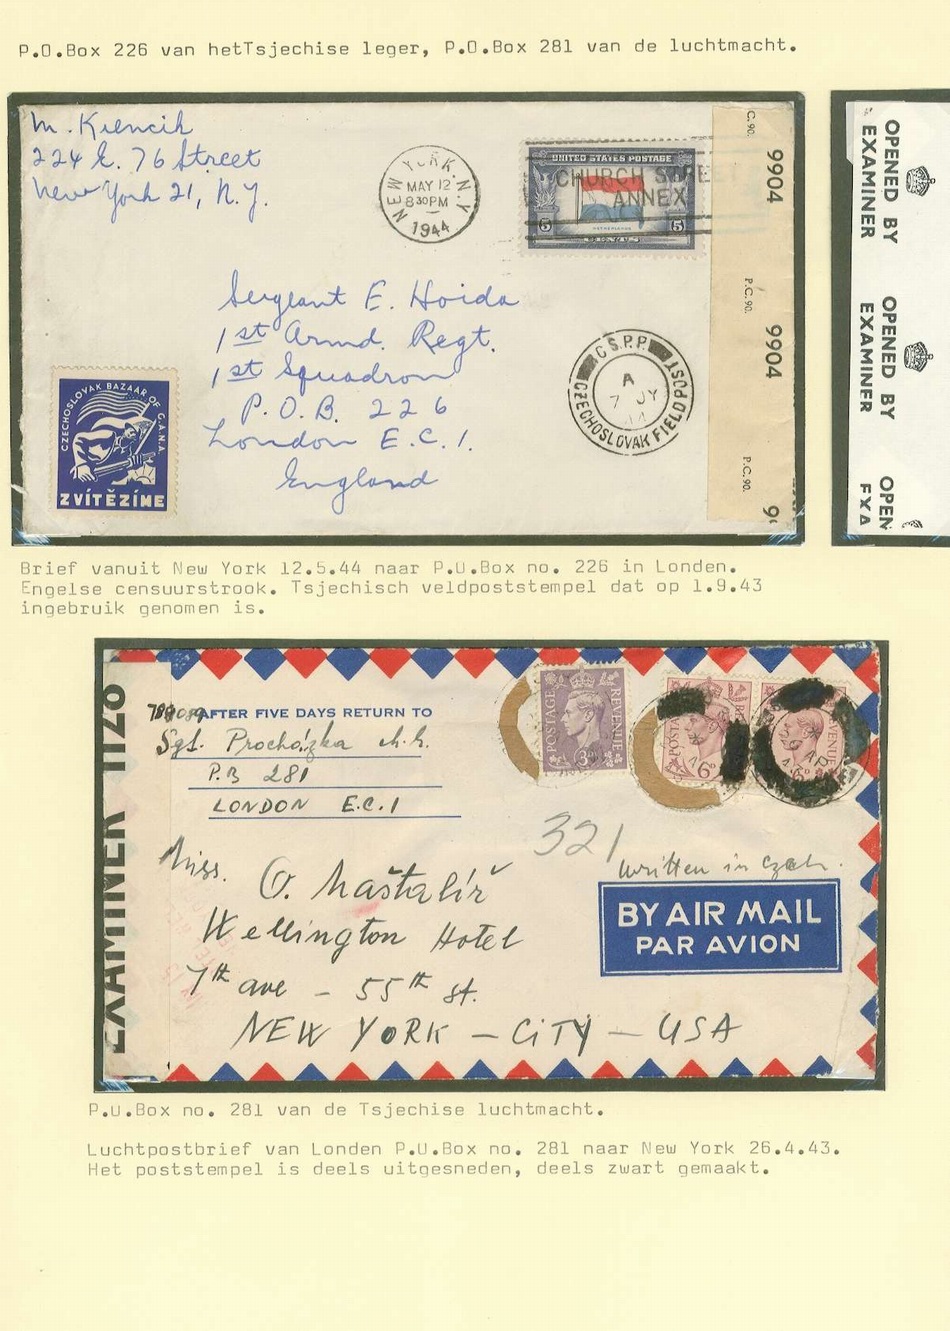 P.O.Box 226 van hetTsjechise leger, P.O.Box 281 van de luchtmacht.
M. Kiencik
224 E. 76 Street
New York 21, N.Y.
NEW YORK, N.Y.
MAY 12
8 30 PM
1944
UNITED STATES POSTAGE
CHURCH STREET
ANNEX
5
5
CENTS
C.90.
9904
P.C.90.
9904
P.C.90.
99
Sergeant E. Hoida
1st Armd. Regt.
1st Squadron
P.O.B. 226
London E.C.1.
England
C.S.P.P.
A
7 JY
44
CZECHOSLOVAK FIELDPOST
CZECHOSLOVAK BAZAAR OF C.A.N.A.
ZVÍTĚZÍME
OPENED BY
EXAMINER
OPENED BY
EXAMINER
OPEN
EXA
Brief vanuit New York 12.5.44 naar P.O.Box no. 226 in Londen.
Engelse censuurstrook. Tsjechisch veldpoststempel dat op 1.9.43
ingebruik genomen is.
EXAMINER 1128
AFTER FIVE DAYS RETURN TO
Sgt. Procházka
P.B 281
LONDON E.C.1
POSTAGE
REVENUE
3D
POSTAGE
6D
29 AP
Miss.
O. Maštalíř
Wellington Hotel
7th ave - 55th st.
NEW YORK - CITY - USA
321
written in Czech.
BY AIR MAIL
PAR AVION
P.O.Box no. 281 van de Tsjechise luchtmacht.
Luchtpostbrief van Londen P.O.Box no. 281 naar New York 26.4.43.
Het poststempel is deels uitgesneden, deels zwart gemaakt.